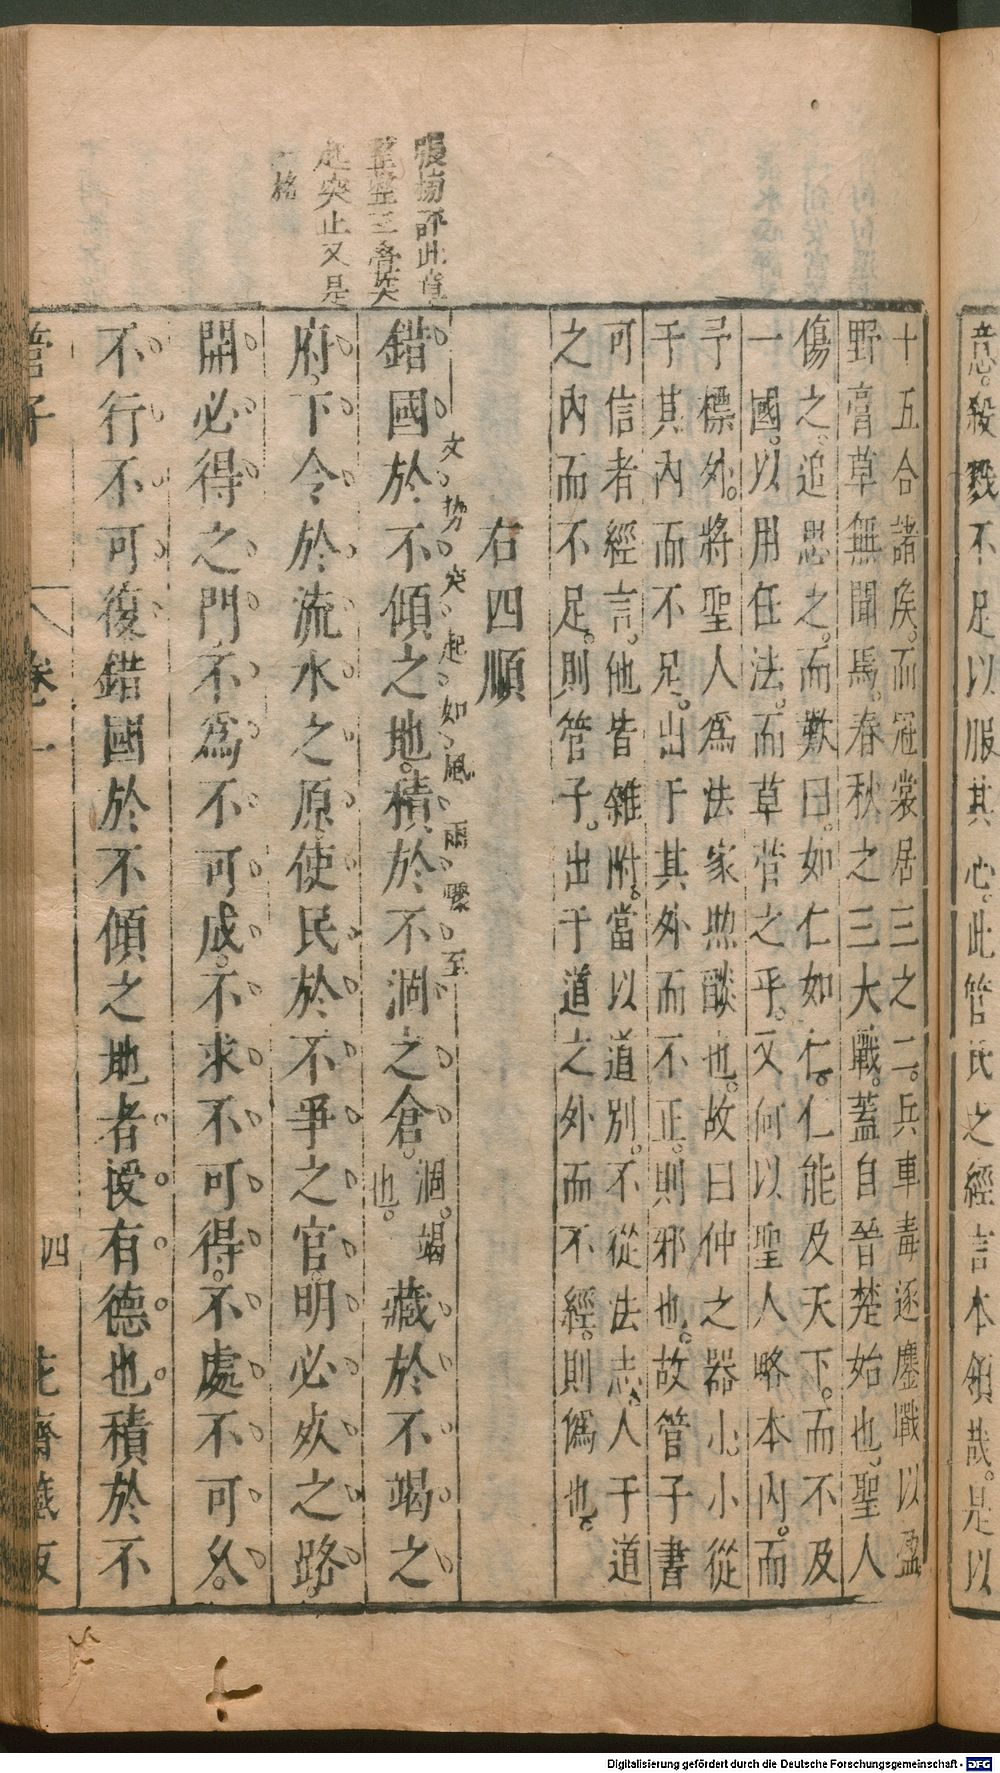 意。殺戮不足以服其心。此管氏之經言本領哉。是以
十五合諸矦。而冠裳居三之二。兵車毒逐鏖戰以盈
野膏草無聞焉。春秋之三大戰。蓋自晉楚始也。聖人
傷之。追思之。而歎曰。如仁如仁。仁能及天下。而不及
一國。以用任法。而草菅之乎。又何以聖人略本內。而
予標外。將聖人爲法家煦醶也。故曰仲之器小。小從
于其內而不足。出于其外而不正。則邪也。故管子書
可信者經言。他皆雜附。當以道別。不從法志。人于道
之內而不足。則管子。出于道之外而不經。則僞也。
右四順
張榜評此章
整整三疊突
起突止又是
格
文勢突起如風雨驟至
錯國於不傾之地。積於不涸之倉。涸。竭也。藏於不竭之
府。下令於流水之原。使民於不爭之官。明必死之路。
開必得之門。不爲不可成。不求不可得。不處不可久。
不行不可復錯國於不傾之地者授有德也積於不
管子 卷一 四 花齋藏板
Digitalisierung gefördert durch die Deutsche Forschungsgemeinschaft - DFG